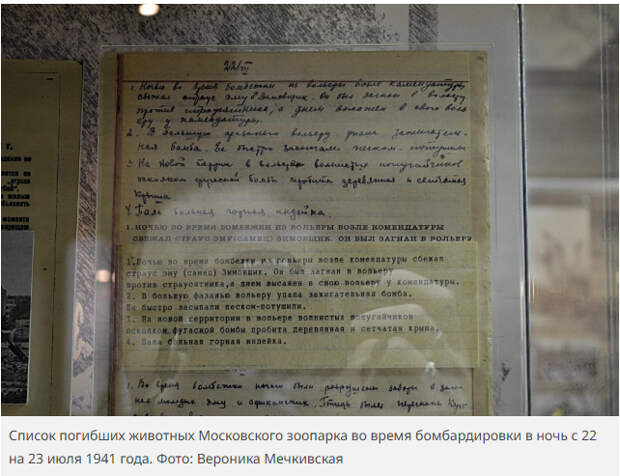 22/VII
1. Ночью во время бомбежки из вольеры возле комендатуры
сбежал страус эму Зимовщик. Он был загнан в вольеру
против страусятника, а днем
у комендатуры.
2. В большую фазанью вольеру упала зажигатель-
ная бомба. Ее быстро засыпали песком - потушили
3. На новой террит. в вольере волнистых попугайчиков
осколком фугасной бомбы пробита деревянная и сетчатая
крыша
4. Пала больная горная индейка.
1. НОЧЬЮ ВО ВРЕМЯ БОМБЕЖКИ ИЗ ВОЛЬЕРЫ ВОЗЛЕ КОМЕНДАТУРЫ
СБЕЖАЛ СТРАУС ЭМУ (САМЕЦ) ЗИМОВЩИК. ОН БЫЛ ЗАГНАН В ВОЛЬЕРУ
1. Ночью во время бомбежки из вольеры возле комендатуры сбежал
страус эму (самец) Зимовщик. Он был загнан в вольеру
против страусятника, а днем высажен в свою вольеру у комендатуры.
2. В большую фазанью вольеру упала зажигательная бомба.
Ее быстро засыпали песком-потушили.
3. На новой территории в вольере волнистых попугайчиков
осколком фугасной бомбы пробита деревянная и сетчатая крыша.
4. Пала больная горная индейка.
1. Во время бомбежки ночью были разрушены заборы в
Список погибших животных Московского зоопарка во время бомбардировки в ночь с 22
на 23 июля 1941 года. Фото: Вероника Мечкивская